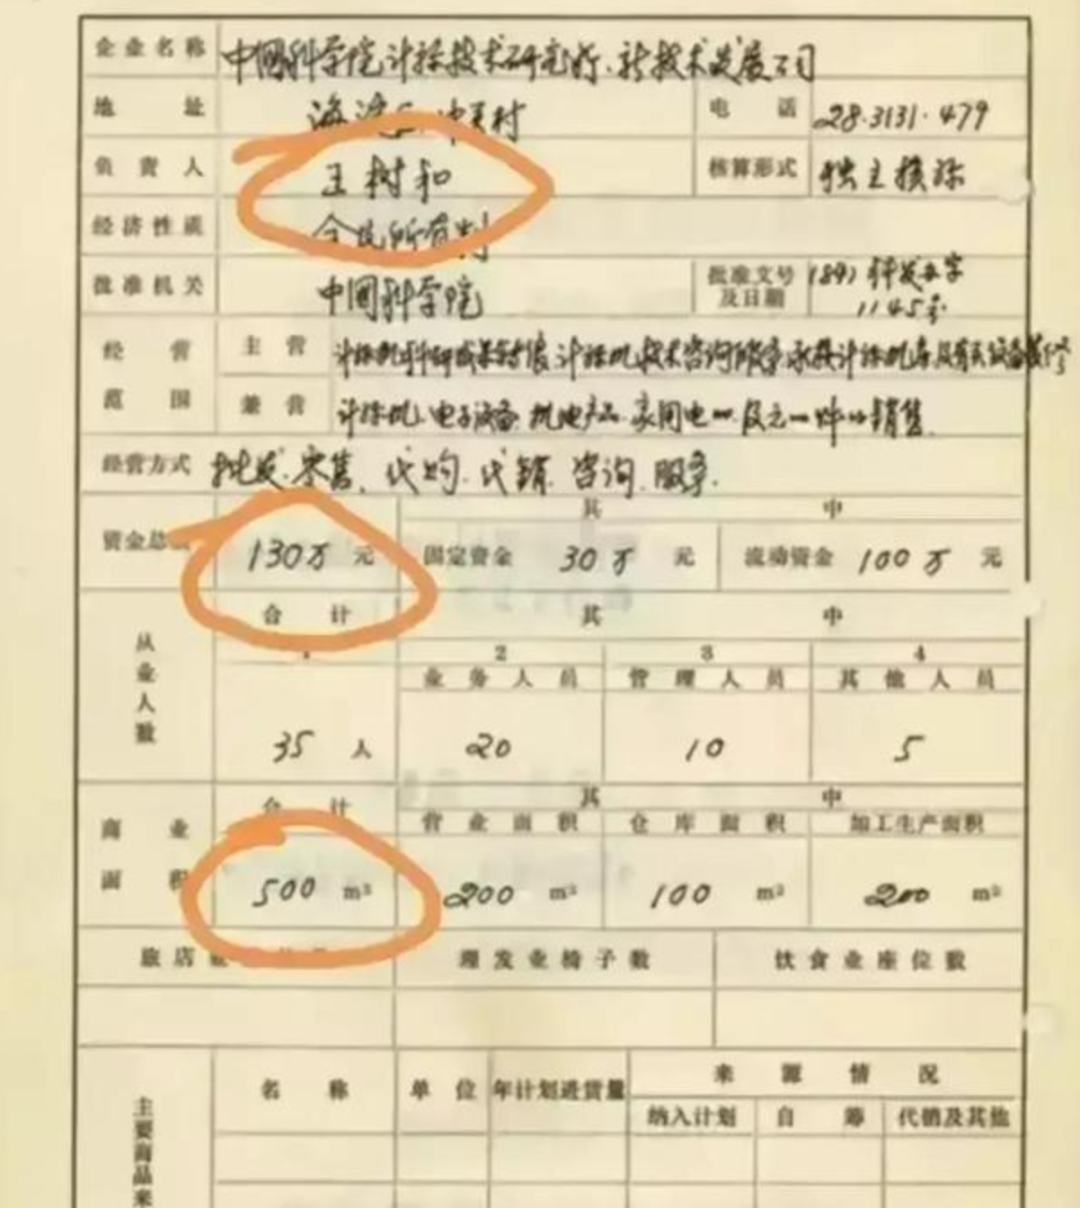 企业名称 中国科学院计算技术研究所新技术发展公司
地址 海淀区中关村 电话 28.3131.479
负责人 王树和 核算形式 独立核算
经济性质 全民所有制
批准机关 中国科学院 批准文号及日期 (84) 科发办字 1145号
经营范围 主营 计算机科研成果 计算机技术咨询服务 承接计算机
兼营 计算机、电子设备、机电产品、家用电 销售
经营方式 批发、零售、代购、代销、咨询、服务.
其中
资金总 130万元 固定资金 30万元 流动资金 100万元
从业人数 合计 其中
1 2 3 4
业务人员 管理人员 其他人员
35人 20 10 5
商业面积 合计 其中
营业面积 仓库面积 加工生产面积
500 m² 200 m² 100 m² 200 m²
旅店 理发业椅子数 饮食业座位数
主要商品来 名称 单位 年计划进货量 来源情况
纳入计划 自筹 代销及其他